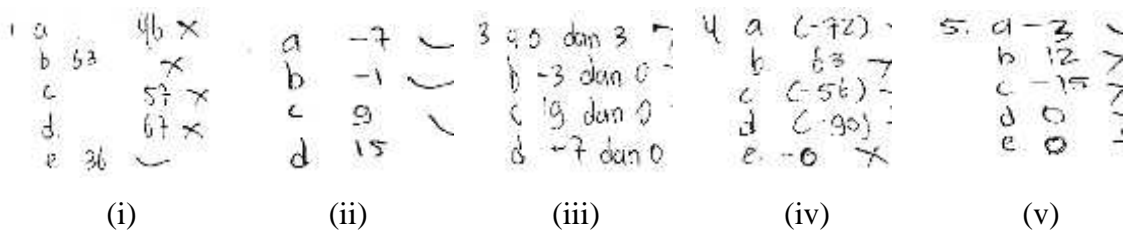 1 a 46 ×
b 63 ×
c 57 ×
d. 67 ×
e 36 ✓
a -7 ✓
b -1 ✓
c 9 ✓
d 15
3 a 0 dan 3
b -3 dan 0
c 9 dan 0
d -7 dan 0
4 a (-72)
b. 63
c (-56)
d (-90)
e. -0 ×
5. a -3
b 12
c -15
d 0
e 0
(i) (ii) (iii) (iv) (v)